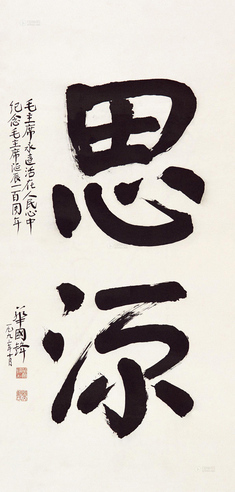 思源
毛主席永远活在人民心中
纪念毛主席诞辰一百周年
华國锋
一九九三年十月